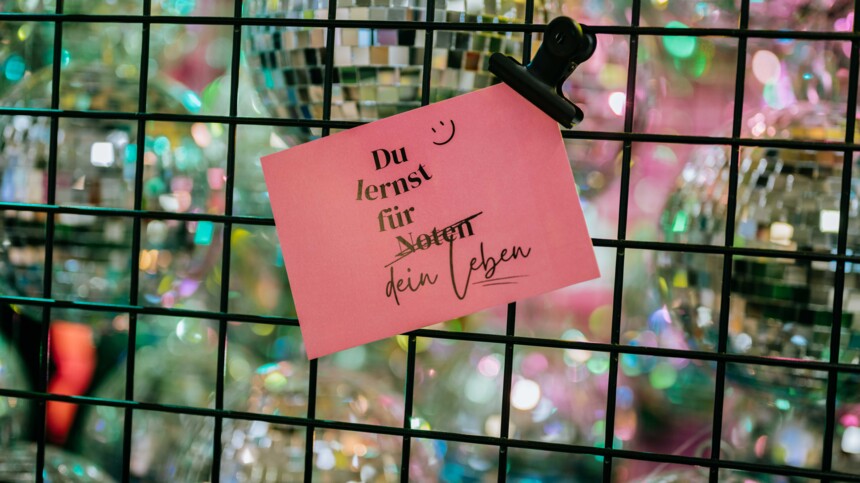 Du
lernst
für
Noten
dein Leben